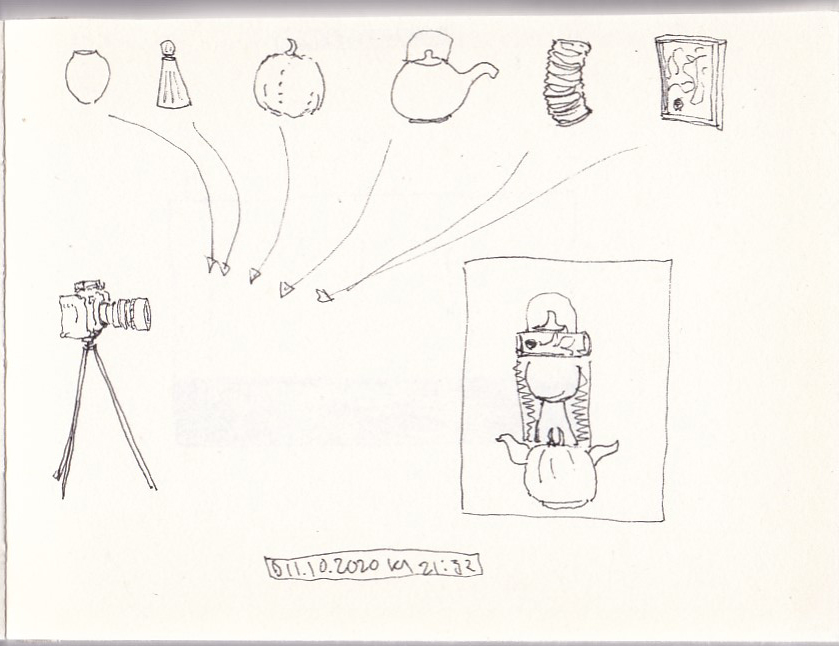 11.10.2020 kl 21:32